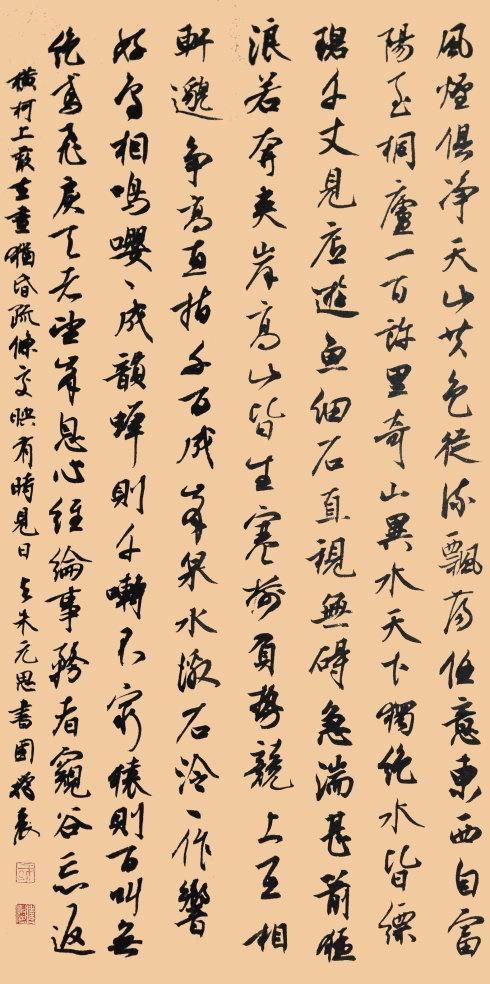 風煙俱净天山共色從流飄蕩任意東西自富
陽至桐廬一百許里奇山異水天下獨绝水皆縹
碧千丈見底遊魚細石直視無碍急湍甚箭猛
浪若奔夹岸高山皆生寒樹負勢競上互相
軒邈争高直指千百成峯泉水激石泠、作響
好鳥相鳴嚶、成韻蟬則千囀不窮猿則百叫無
绝鳶飛戾天者望峯息心經綸事務者窺谷忘返
横柯上蔽在晝猶昏疏條交映有時見日 与朱元思書